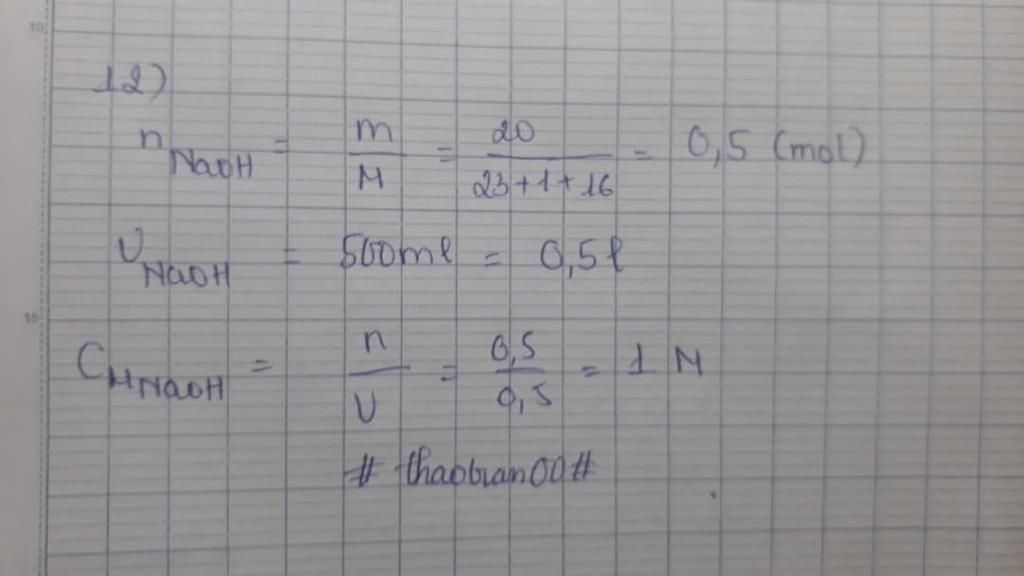 10
12)
n NaOH = m/M = 20/(23+1+16) = 0,5 (mol)
V NaOH = 500ml = 0,5l
15
C M NaOH = n/V = 0,5/0,5 = 1 M
# thaotran00#